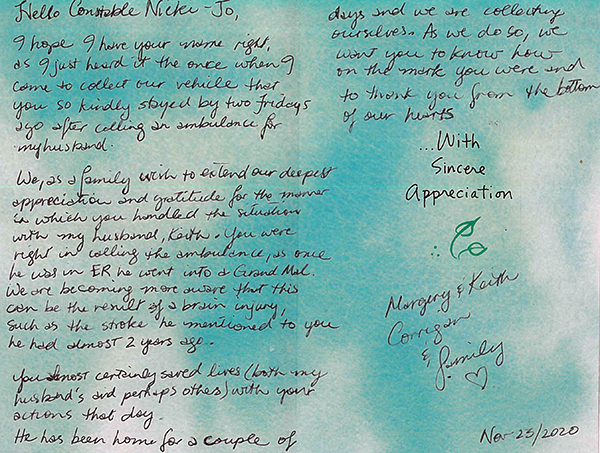 Hello Constable Nicki-Jo,
I hope I have your name right,
as I just heard it the once when I
came to collect our vehicle that
you so kindly stayed by two fridays
ago after calling an ambulance for
my husband.
We, as a family wish to extend our deepest
appreciation and gratitude for the manner
in which you handled the situation
with my husband, Keith. You were
right in calling the ambulance, as once
he was in ER he went into a Grand Mal.
We are becoming more aware that this
can be the result of a brain injury,
such as the stroke he mentioned to you
he had almost 2 years ago.
You almost certainly saved lives (both my
husband's and perhaps others) with your
actions that day.
He has been home for a couple of
days and we are collecting
ourselves. As we do so, we
want you to know how
on the mark you were and
to thank you from the bottom
of our hearts
...With
Sincere
Appreciation
Margery & Keith
Corrigan
& family
Nov 25/2020